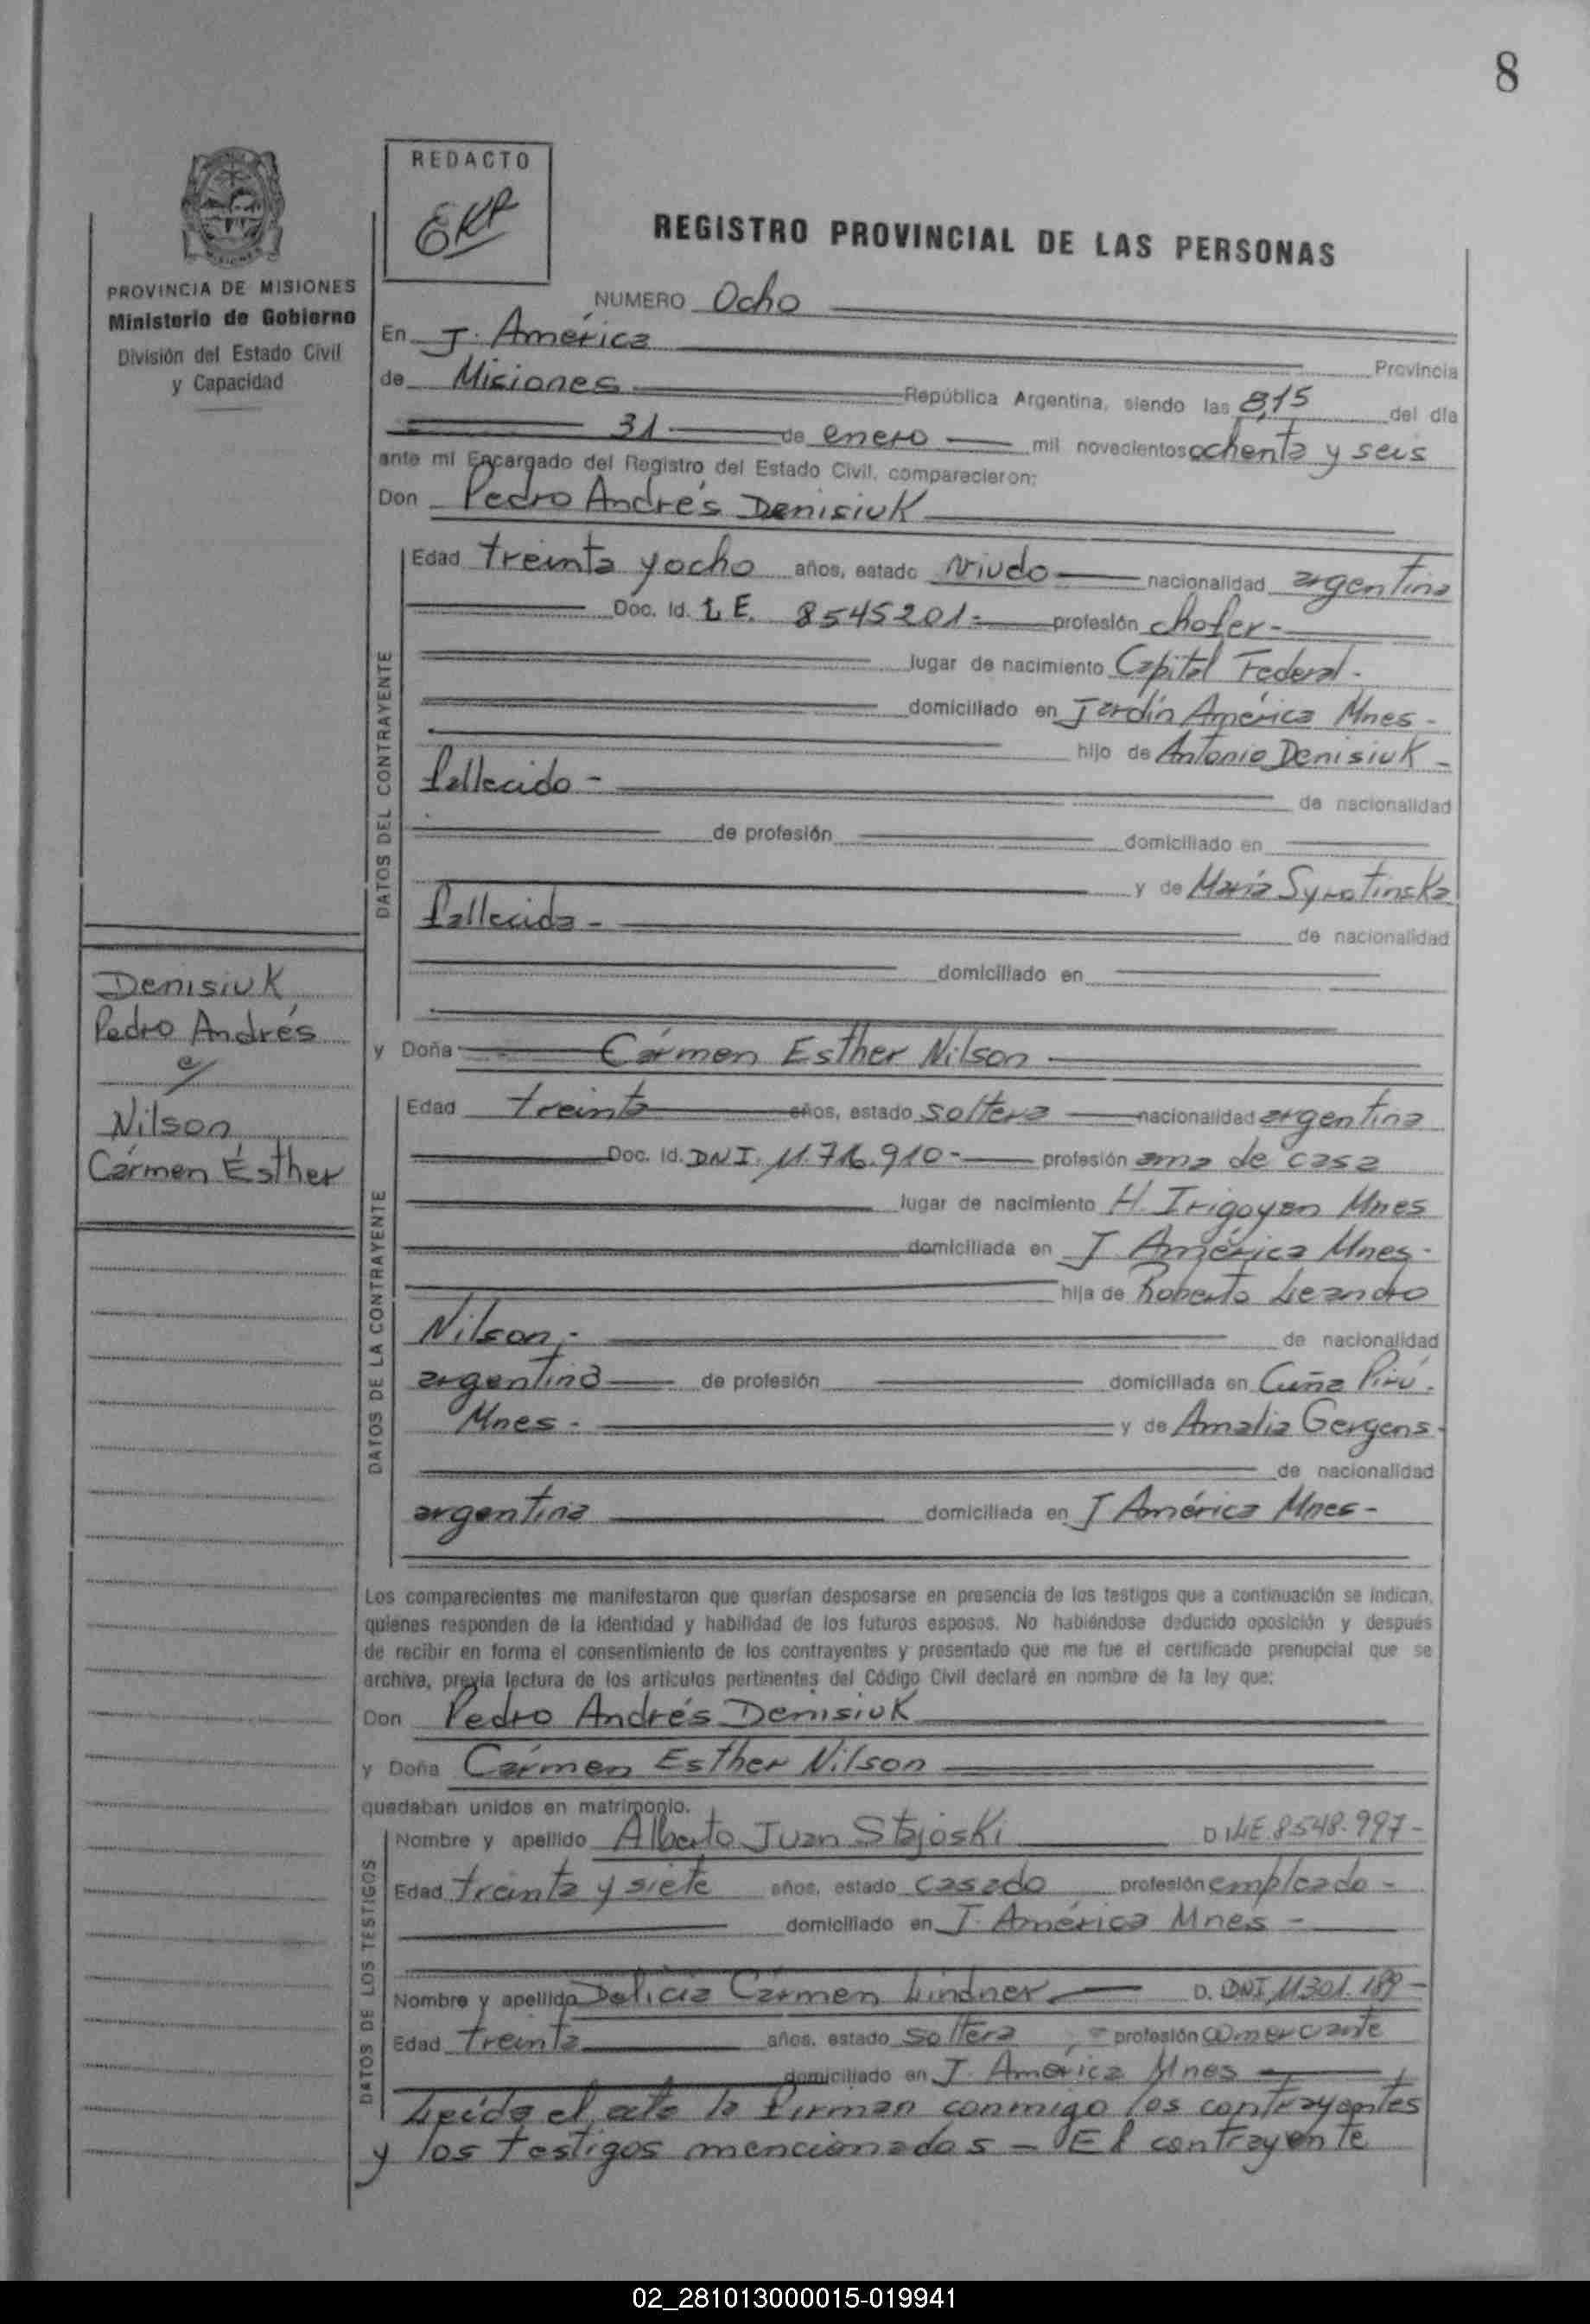 8
REDACTO
EKP
REGISTRO PROVINCIAL DE LAS PERSONAS
PROVINCIA DE MISIONES
Ministerio de Gobierno
División del Estado Civil
y Capacidad
NUMERO Ocho
En J. América Provincia
de Misiones República Argentina, siendo las 8,15 del día
31 de enero mil novecientos ochenta y seis
ante mí Encargado del Registro del Estado Civil, comparecieron:
Don Pedro Andrés Denisiuk
DATOS DEL CONTRAYENTE
Edad treinta y ocho años, estado viudo nacionalidad argentina
Doc. Id. L E. 8545201- profesión chofer-
lugar de nacimiento Capital Federal-
domiciliado en Jardín América Mnes-
hijo de Antonio Denisiuk-
fallecido- de nacionalidad
de profesión domiciliado en
y de María Syrotinska
fallecida- de nacionalidad
domiciliado en
Denisiuk
Pedro Andrés
c/
Nilson
Cármen Esther
y Doña Cármen Esther Nilson
DATOS DE LA CONTRAYENTE
Edad treinta años, estado soltera nacionalidad argentina
Doc. Id. DNI. 11.716.910- profesión ama de casa
lugar de nacimiento H. Irigoyen Mnes
domiciliada en J. América Mnes-
hija de Roberto Leandro
Nilson- de nacionalidad
argentina de profesión domiciliada en Cuña Pirú-
Mnes- y de Amalia Gergens-
de nacionalidad
argentina domiciliada en J América Mnes-
Los comparecientes me manifestaron que querían desposarse en presencia de los testigos que a continuación se indican,
quienes responden de la identidad y habilidad de los futuros esposos. No habiéndose deducido oposición y después
de recibir en forma el consentimiento de los contrayentes y presentado que me fue el certificado prenupcial que se
archiva, previa lectura de los artículos pertinentes del Código Civil declaré en nombre de la ley que:
Don Pedro Andrés Denisiuk
y Doña Cármen Esther Nilson
quedaban unidos en matrimonio.
DATOS DE LOS TESTIGOS
Nombre y apellido Alberto Juan Stajoski D.LE.8548.997-
Edad treinta y siete años, estado casado profesión empleado-
domiciliado en J. América Mnes-
Nombre y apellido Delicia Cármen Lindner D. DNI 11301.189-
Edad treinta años, estado soltera - profesión comerciante
domiciliado en J. América Mnes
Leída el acta la firman conmigo los contrayentes
y los testigos mencionados - El contrayente
02_281013000015-019941